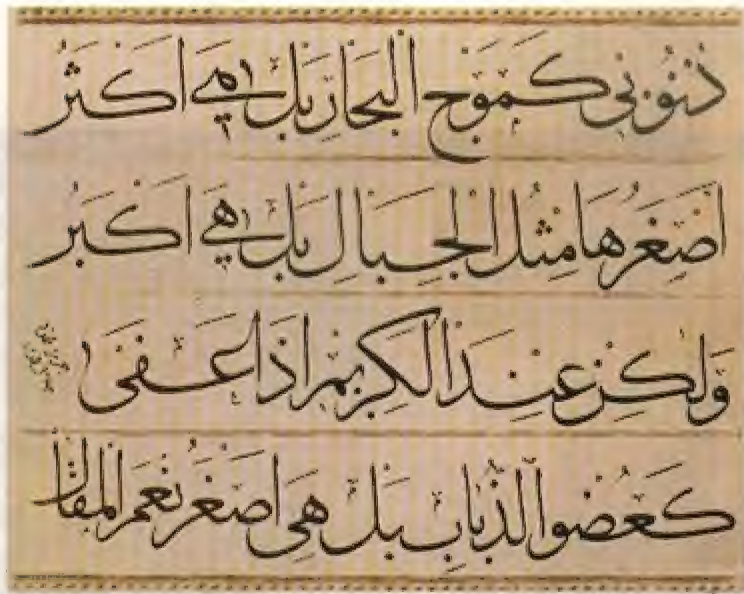 ذُنُوْبِي كَمَوْجِ الْبِحَارِ بَلْ هِيَ اَكْثَرُ
اَصْغَرُهَا مِثْلُ الْجِبَالِ بَلْ هِيَ اَكْبَرُ
وَلٰكِنْ عِنْدَ الْكَرِيْمِ اِذَا عَفٰى
كَعُضْوِ الذُّبَابِ بَلْ هِيَ اَصْغَرُ نِعْمَ الْمَقَال